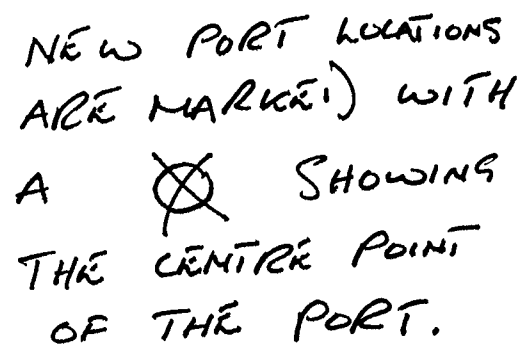 NEW PORT LOCATIONS
ARE MARKED WITH
A ⊗ SHOWING
THE CENTRE POINT
OF THE PORT.